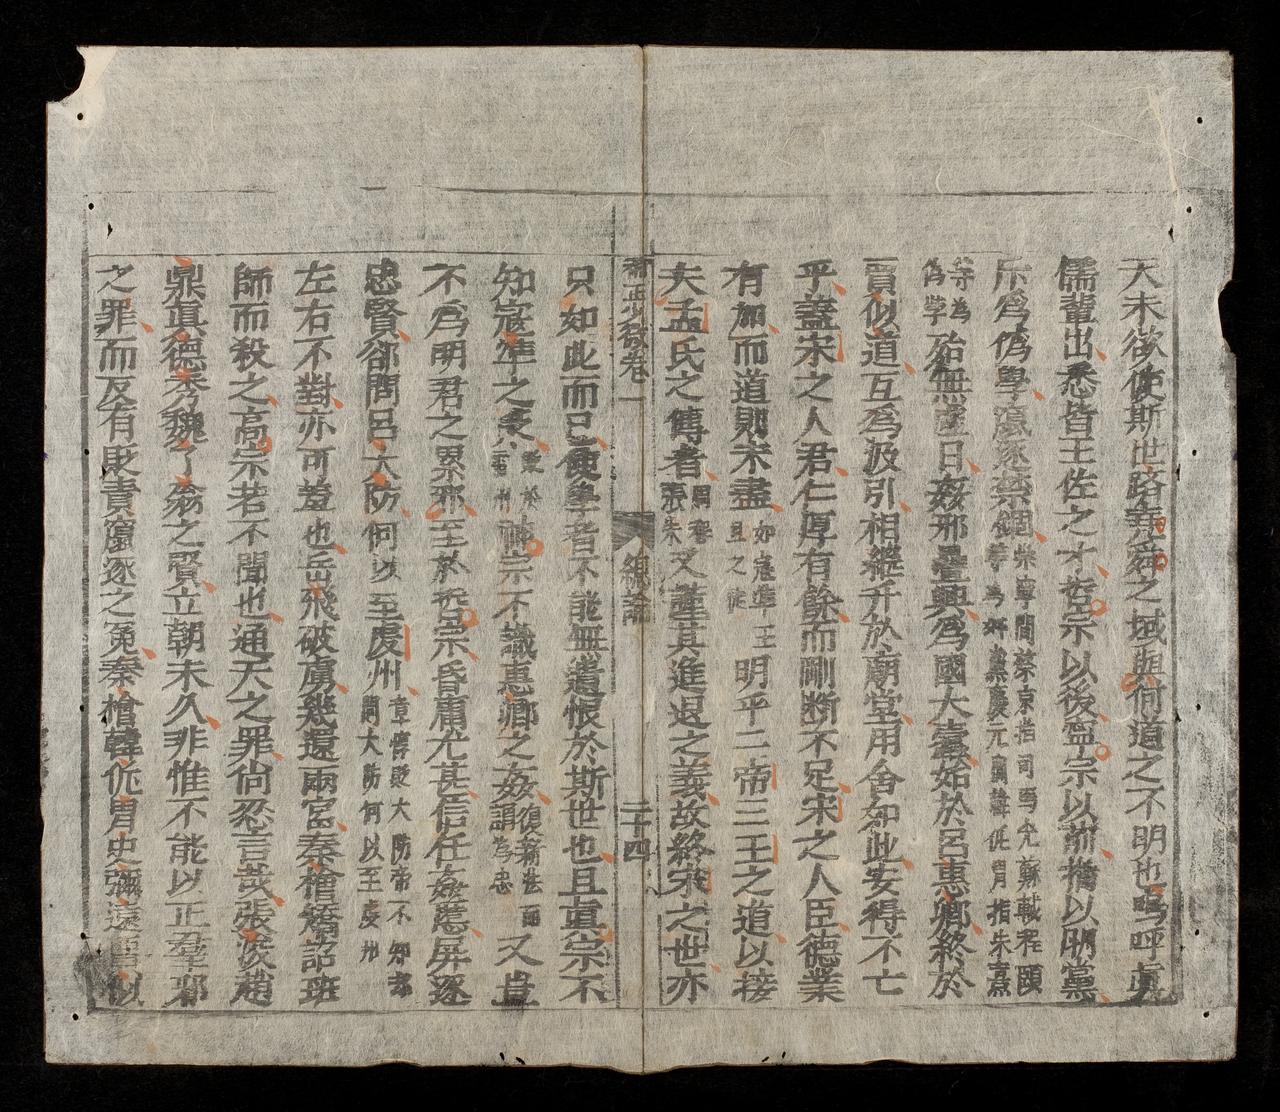 天未欲使斯世路堯舜之域與何道之不明也嗚呼眞
儒輩出悉皆王佐之才哲宗以後寧宗以前擠以朋黨
斥爲僞學竄逐禁錮崇寧間蔡京指司馬光蘇軾程頤
等爲奸黨慶元間韓侂胄指朱熹
等為僞學殆無虛日姦邪疊興爲國大蠹始於呂惠卿終於
賈似道互爲汲引相繼升於廟堂用舍如此安得不亡
乎蓋宋之人君仁厚有餘而剛斷不足宋之人臣德業
有加而道則未盡如寇準王
旦之徒明乎二帝三王之道以接
夫孟氏之傳者周程
張朱又謹其進退之義故終宋之世亦
卷一 總論 二十四
只如此而已使學者不能無遺恨於斯世也且眞宗不
知寇準之忠神宗不識惠卿之姦復新法而
謂爲忠又豈
不爲明君之累邪至於哲宗昏庸尤甚信任姦慝屏逐
忠賢卻問呂大防何以至虔州章惇貶大防帝不知之
問大防何以至虔州
左右不對亦可豈也岳飛破虜幾還兩宮秦檜矯詔班
師而殺之高宗若不聞也通天之罪尚忍言哉張浚趙
鼎眞德秀魏了翁之賢立朝未久非惟不能以正羣邪
之罪而反有貶責竄逐之冤秦檜韓侂胄史彌遠賈似